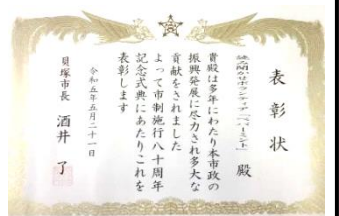 表彰状
読み聞かせボランティア「ペパーミント」 殿
貴殿は多年にわたり本市政の
振興発展に尽力され多大な
貢献をされました
よって市制施行八十周年
記念式典にあたりこれを
表彰します
令和五年五月二十一日
貝塚市長 酒井 了